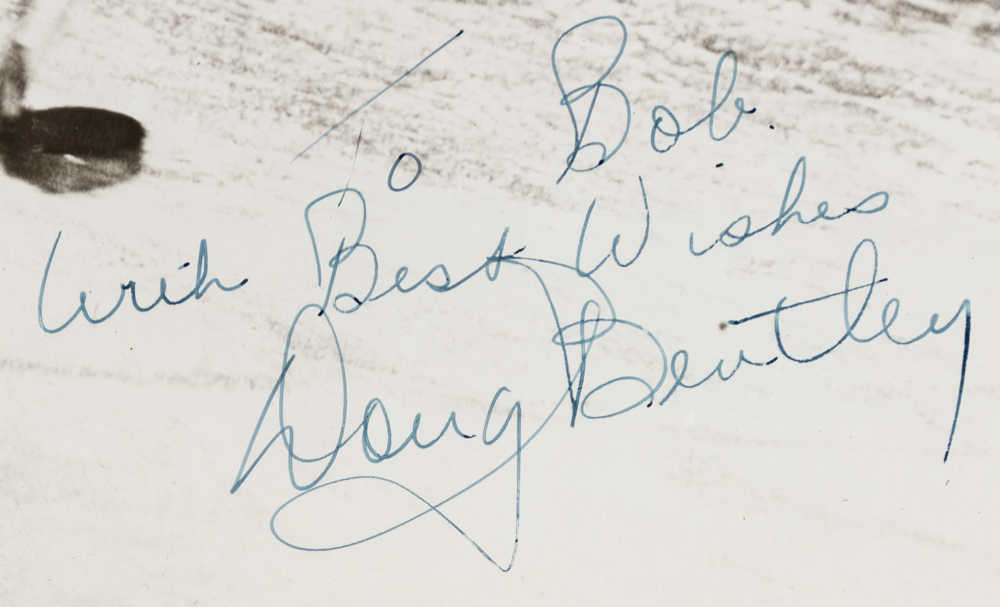 To Bob.
With Best Wishes
Doug Bentley